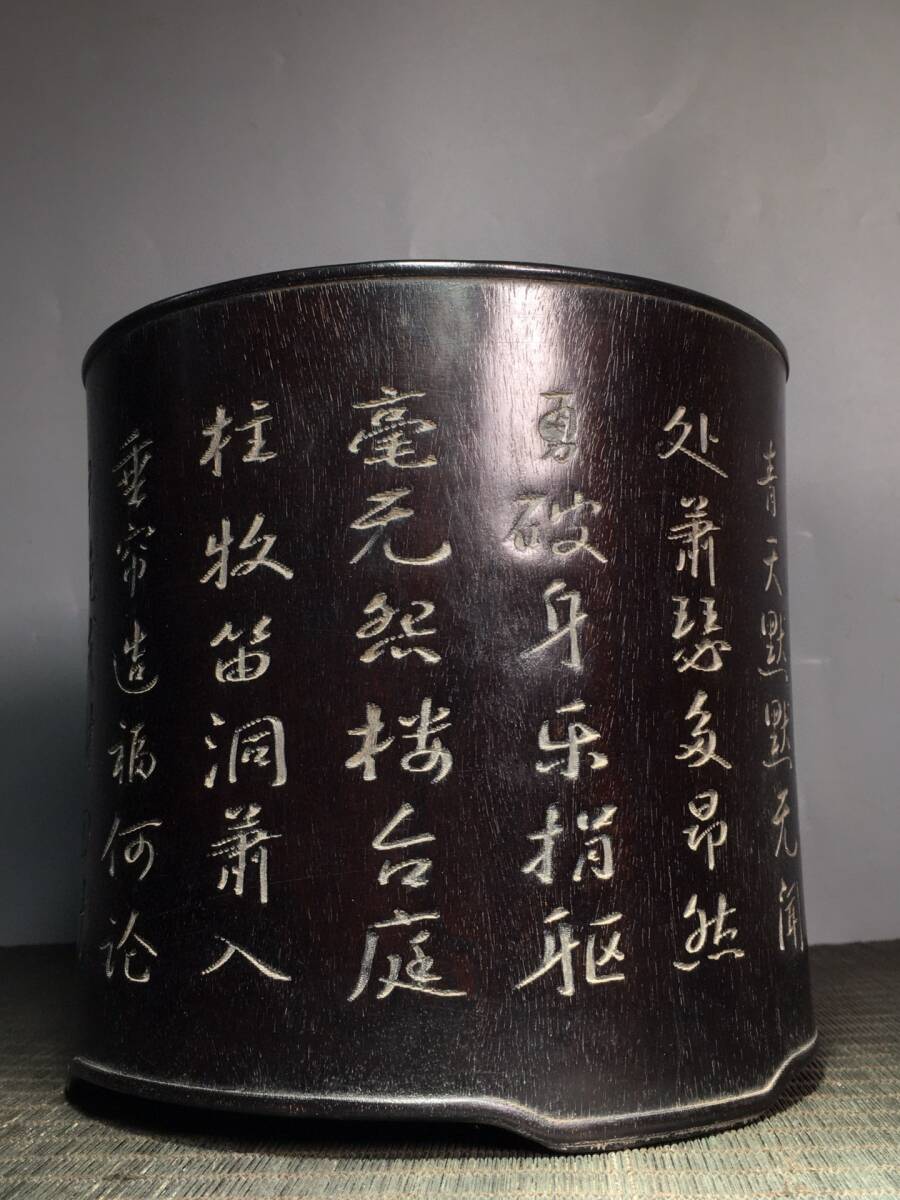 青天默默无闻
处萧瑟多昂然
勇破身乐捐躯
毫无怨楼台庭
柱牧笛洞萧入
垂帘造福何论